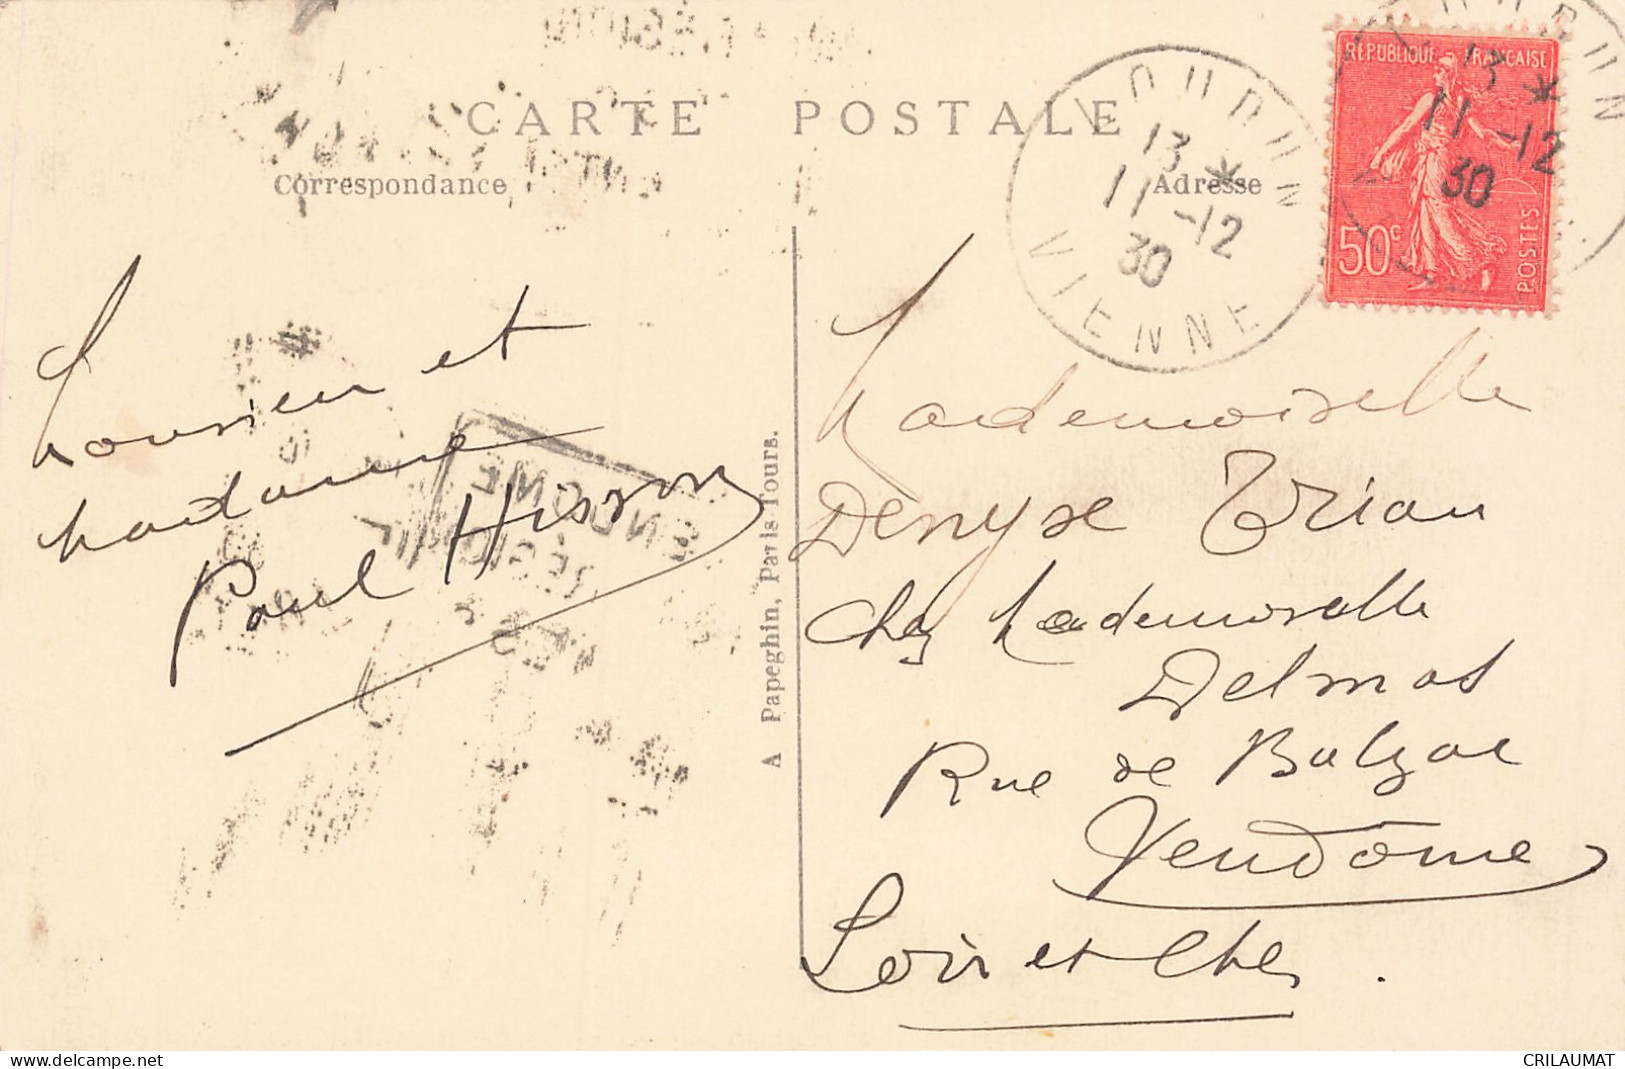 CARTE POSTALE
Correspondance
Adresse
LOUDUN
13 *
11 -12
30
VIENNE
RÉPUBLIQUE FRANÇAISE
50c
POSTES
LOUDUN
13 *
11 -12
30
Monsieur et
Madame
Paul
A Papeghin, Paris Tours.
Mademoiselle
Denyse Brian
Chez Mademoiselle
Delmas
Rue de Balzac
Vendôme
Loir et Cher
www.delcampe.net
CRILAUMAT